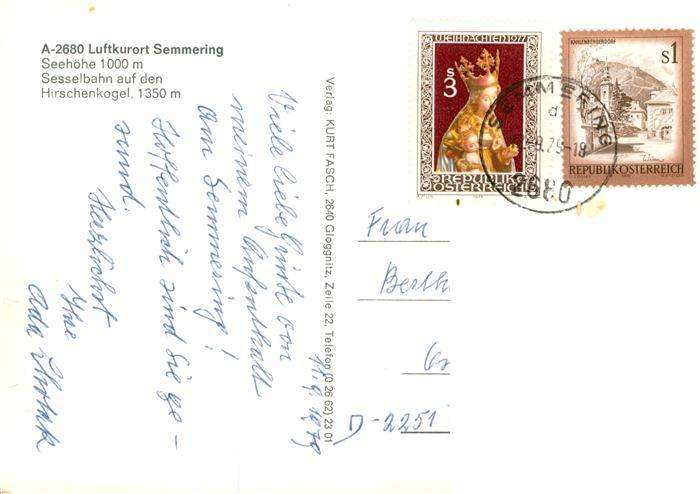 A-2680 Luftkurort Semmering
Seehöhe 1000 m
Sesselbahn auf den
Hirschenkogel, 1350 m
Viele liebe Grüße von
meinem Aufenthalt
am Semmering!
Hoffentlich sind Sie ge-
sund.
Herzlichst
Ihre
Ada
11.9.1979
Verlag: KURT FASCH, 2640 Gloggnitz, Zeile 22, Telefon (0 26 62) 23 01
WEIHNACHTEN 1977
S
3
REPUBLIK
ÖSTERREICH
KAHLENBERGERDORF
S1
REPUBLIK ÖSTERREICH
SEMMERING
d
9.79-18
2680
Frau
Berth
D-2251